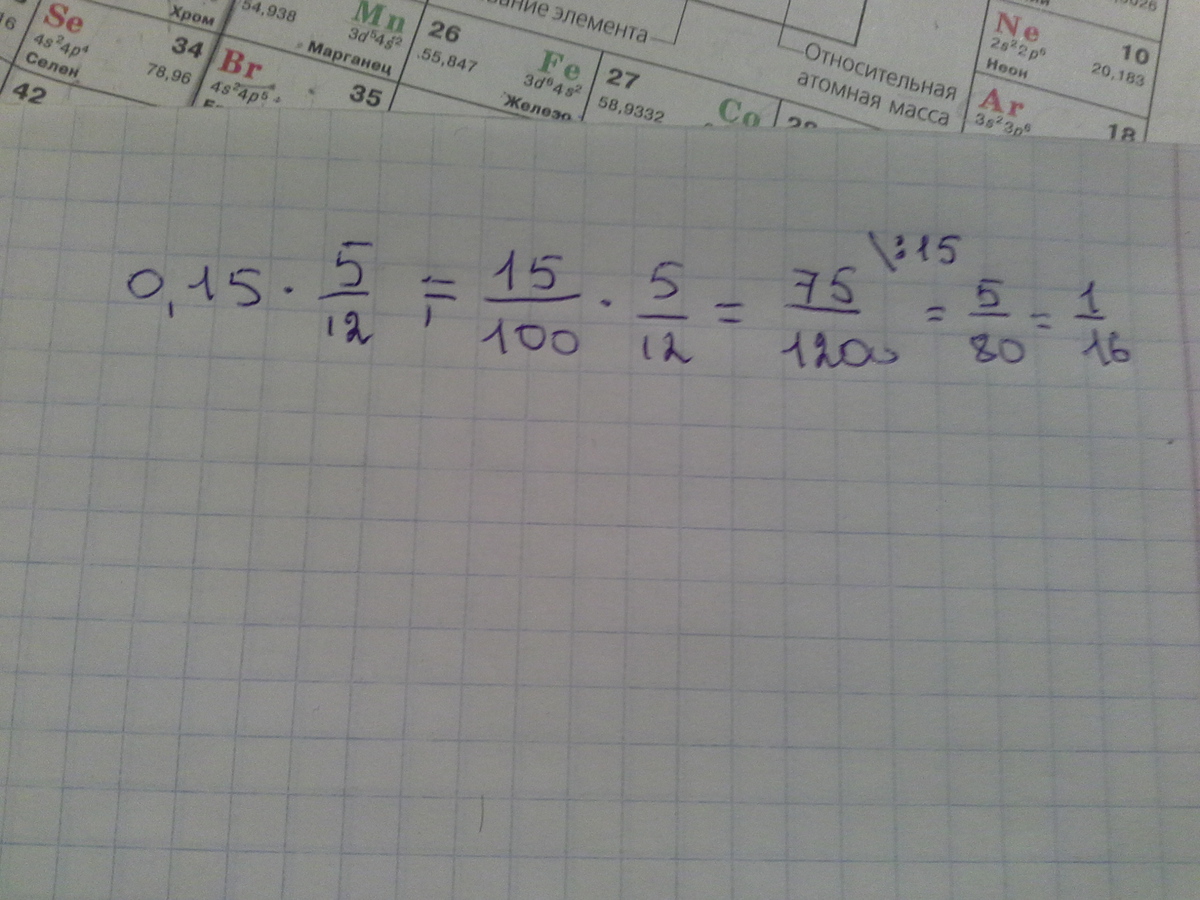 Se
4s²4p⁴
Селен
34
78,96
Хром
42
Br
4s²4p⁵
35
54,938
Mn
3d⁵4s²
Марганец
26
55,847
Fe
3d⁶4s²
Железо
27
58,9332
Co
элемента
Относительная
атомная масса
Ne
2s²2p⁶
Неон
10
20,183
Ar
3s²3p⁶
18
0,15 · 5/12 = 15/100 · 5/12 = 75/1200 \:15 = 5/80 = 1/16